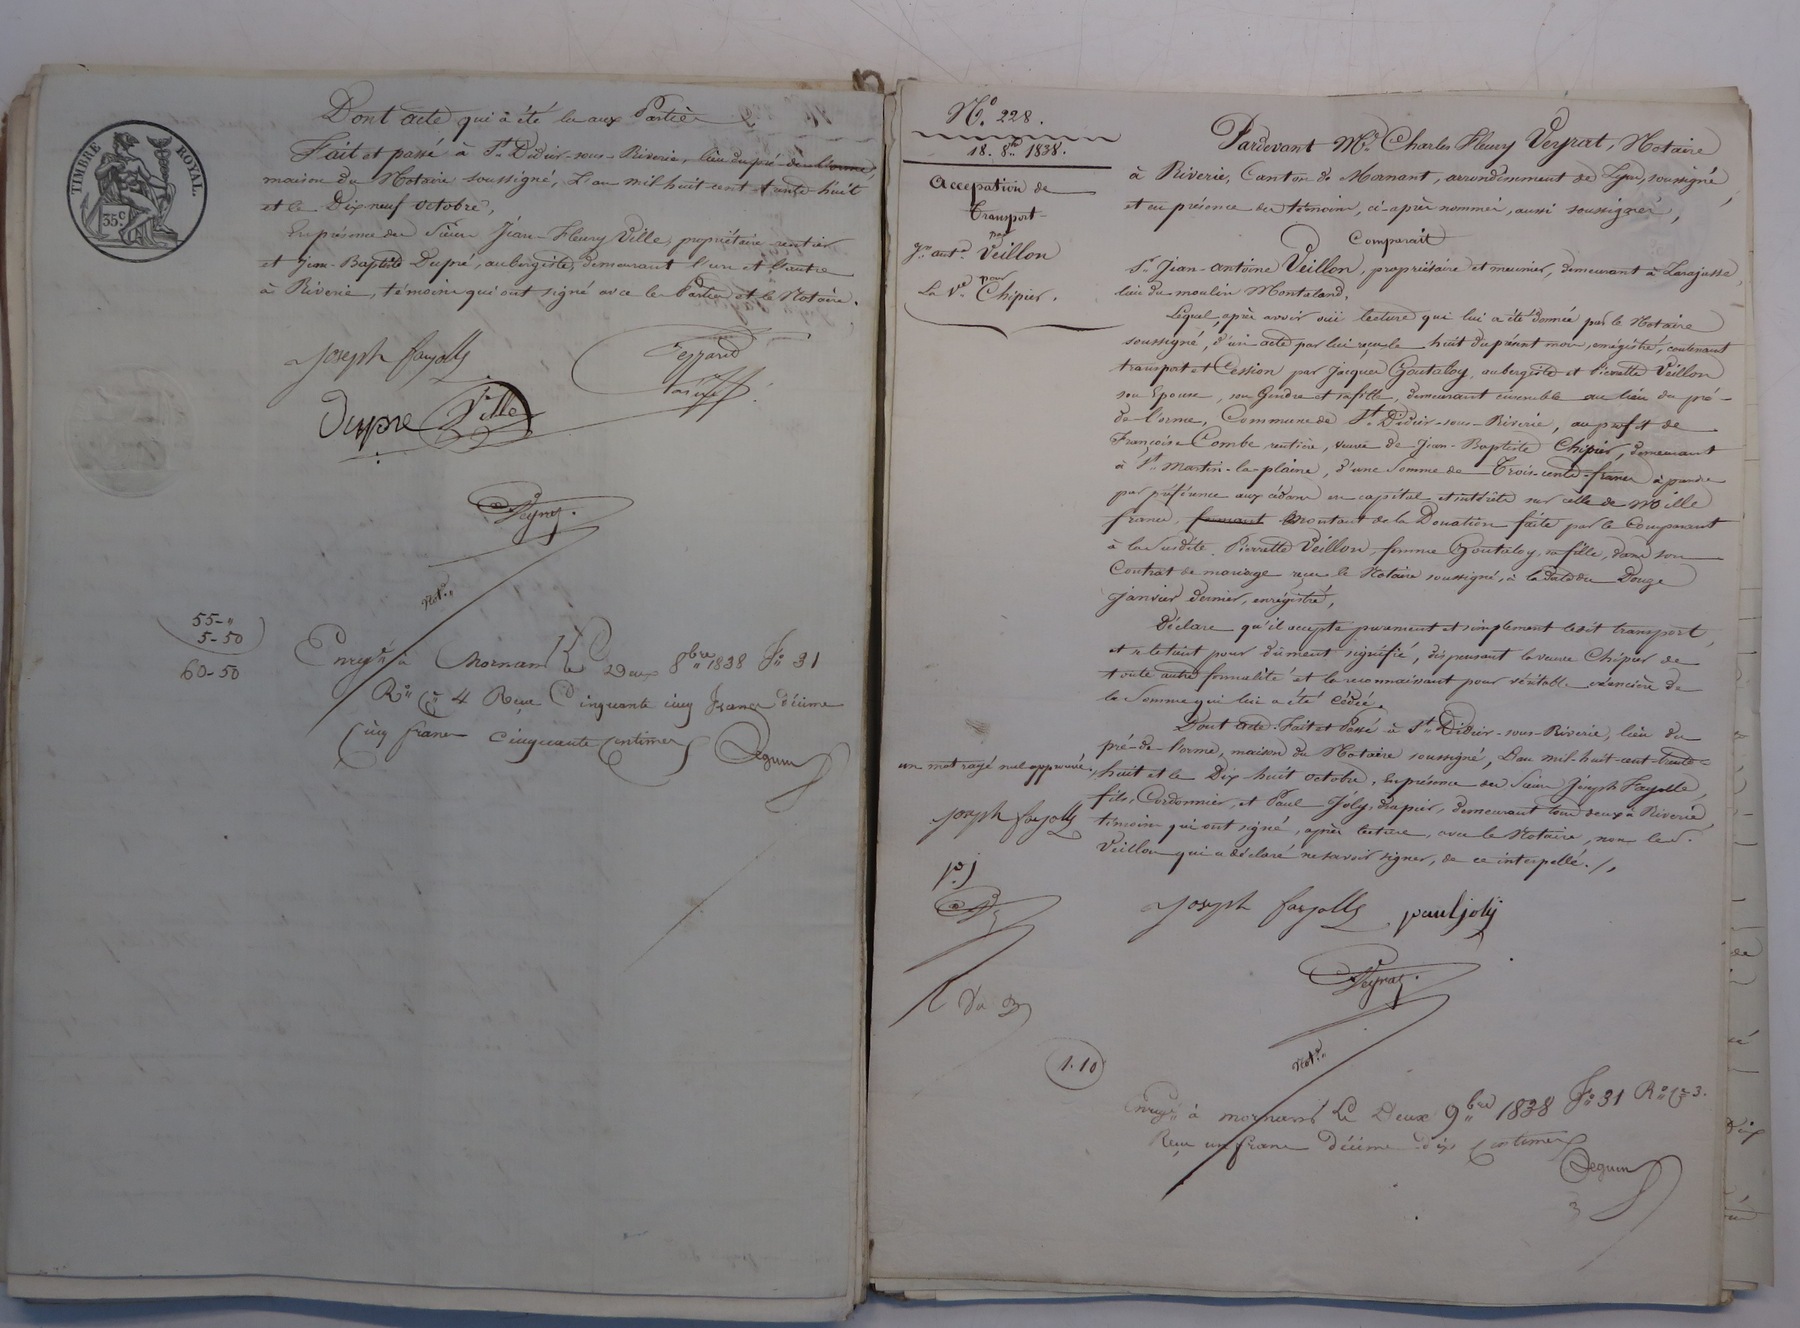 TIMBRE ROYAL.
35c
Dont acte qui à été lu aux Parties
Fait et passé à St. Didier-sous-Riverie, lieu du pré-de-l'orme,
maison du Notaire soussigné, L'an mil huit cent trente huit
et le Dix neuf octobre,
En présence des Sieurs Jean-Fleury Ville, propriétaire rentier
et Jean-Baptiste Dupré, aubergiste, demeurant l'un et l'autre
à Riverie, témoins qui ont signé avec les Parties et le Notaire.
Joseph fayolle
Dupre Ville
Veyrat
Not.re
55-"
5-50
60-50
Enregé. à Mornant Le Deux 1838 Fo 31
Ro Ce 4 Reçu Cinquante cinq francs décime
Cinq francs cinquante Centimes Seguin
No. 228.
18. 8bre 1838.
Accepation de
Transport
par
Jn. ant. Veillon
pour
La Ve. Chipier.
Pardevant Me. Charles Fleury Veyrat, Notaire
à Riverie, Canton de Mornant, arrondissement de Lyon, soussigné
et en présence des témoins, ci-après nommés, aussi soussignés,
Comparait
Sr. Jean-antoine Veillon, propriétaire et meunier, demeurant à Larajasse,
lieu du moulin Montaland,
Lequel, après avoir ouï lecture qui lui a été donnée par le Notaire
soussigné, d'un acte par lui reçu le huit du présent mois, enrégistré, contenant
transport et Cession par Jacques Goutaloy, aubergiste et Pierrette Veillon
son Epouse, son Gendre et sa fille, demeurant ensemble au lieu du pré-
de-l'orme, Commune de St. Didier-sous-Riverie, au profit de
Françoise Combe rentière, veuve de Jean-Baptiste Chipier, demeurant
à St. Martin-la-plaine, d'une Somme de Trois-cents-francs à prendre
par préférence aux cédans en capital et intérêts sur celle de Mille
francs, formant Montant de la Donation faite par le Comparant
à la Susdite Pierrette Veillon femme Goutaloy, sa fille, dans son
Contrat de mariage reçu le Notaire soussigné, à la date du Douze
Janvier dernier, enrégistré,
Déclare qu'il accepte purement et simplement ledit transport,
et se le tient pour dûment signifié, dispensant la veuve Chipier de
toute autre formalité et la reconnaissant pour véritable créancière de
la Somme qui lui a été Cédée.
Dont acte. Fait et Passé à St. Didier-sous-Riverie, lieu du
pré-de-l'orme, maison du Notaire soussigné, L'an mil-huit-cent-trente-
huit et le Dix huit octobre, En présence des Sieurs Joseph Fayolle,
fils, Cordonnier, et Paul Joly, drapier, demeurant tous deux à Riverie,
témoins qui ont signé, après lecture, avec le Notaire, non le S.
Veillon qui a déclaré ne savoir signer, de ce interpellé./.
un mot rayé nul approuvé.
Joseph fayolle
p. j
Joseph fayolle paul joly
Veyrat
Not.re
1.10
Enregé. à mornant Le Deux 9bre 1838 Fo 31 Ro Ce 3.
Reçu un franc décime dix Centimes
Seguin